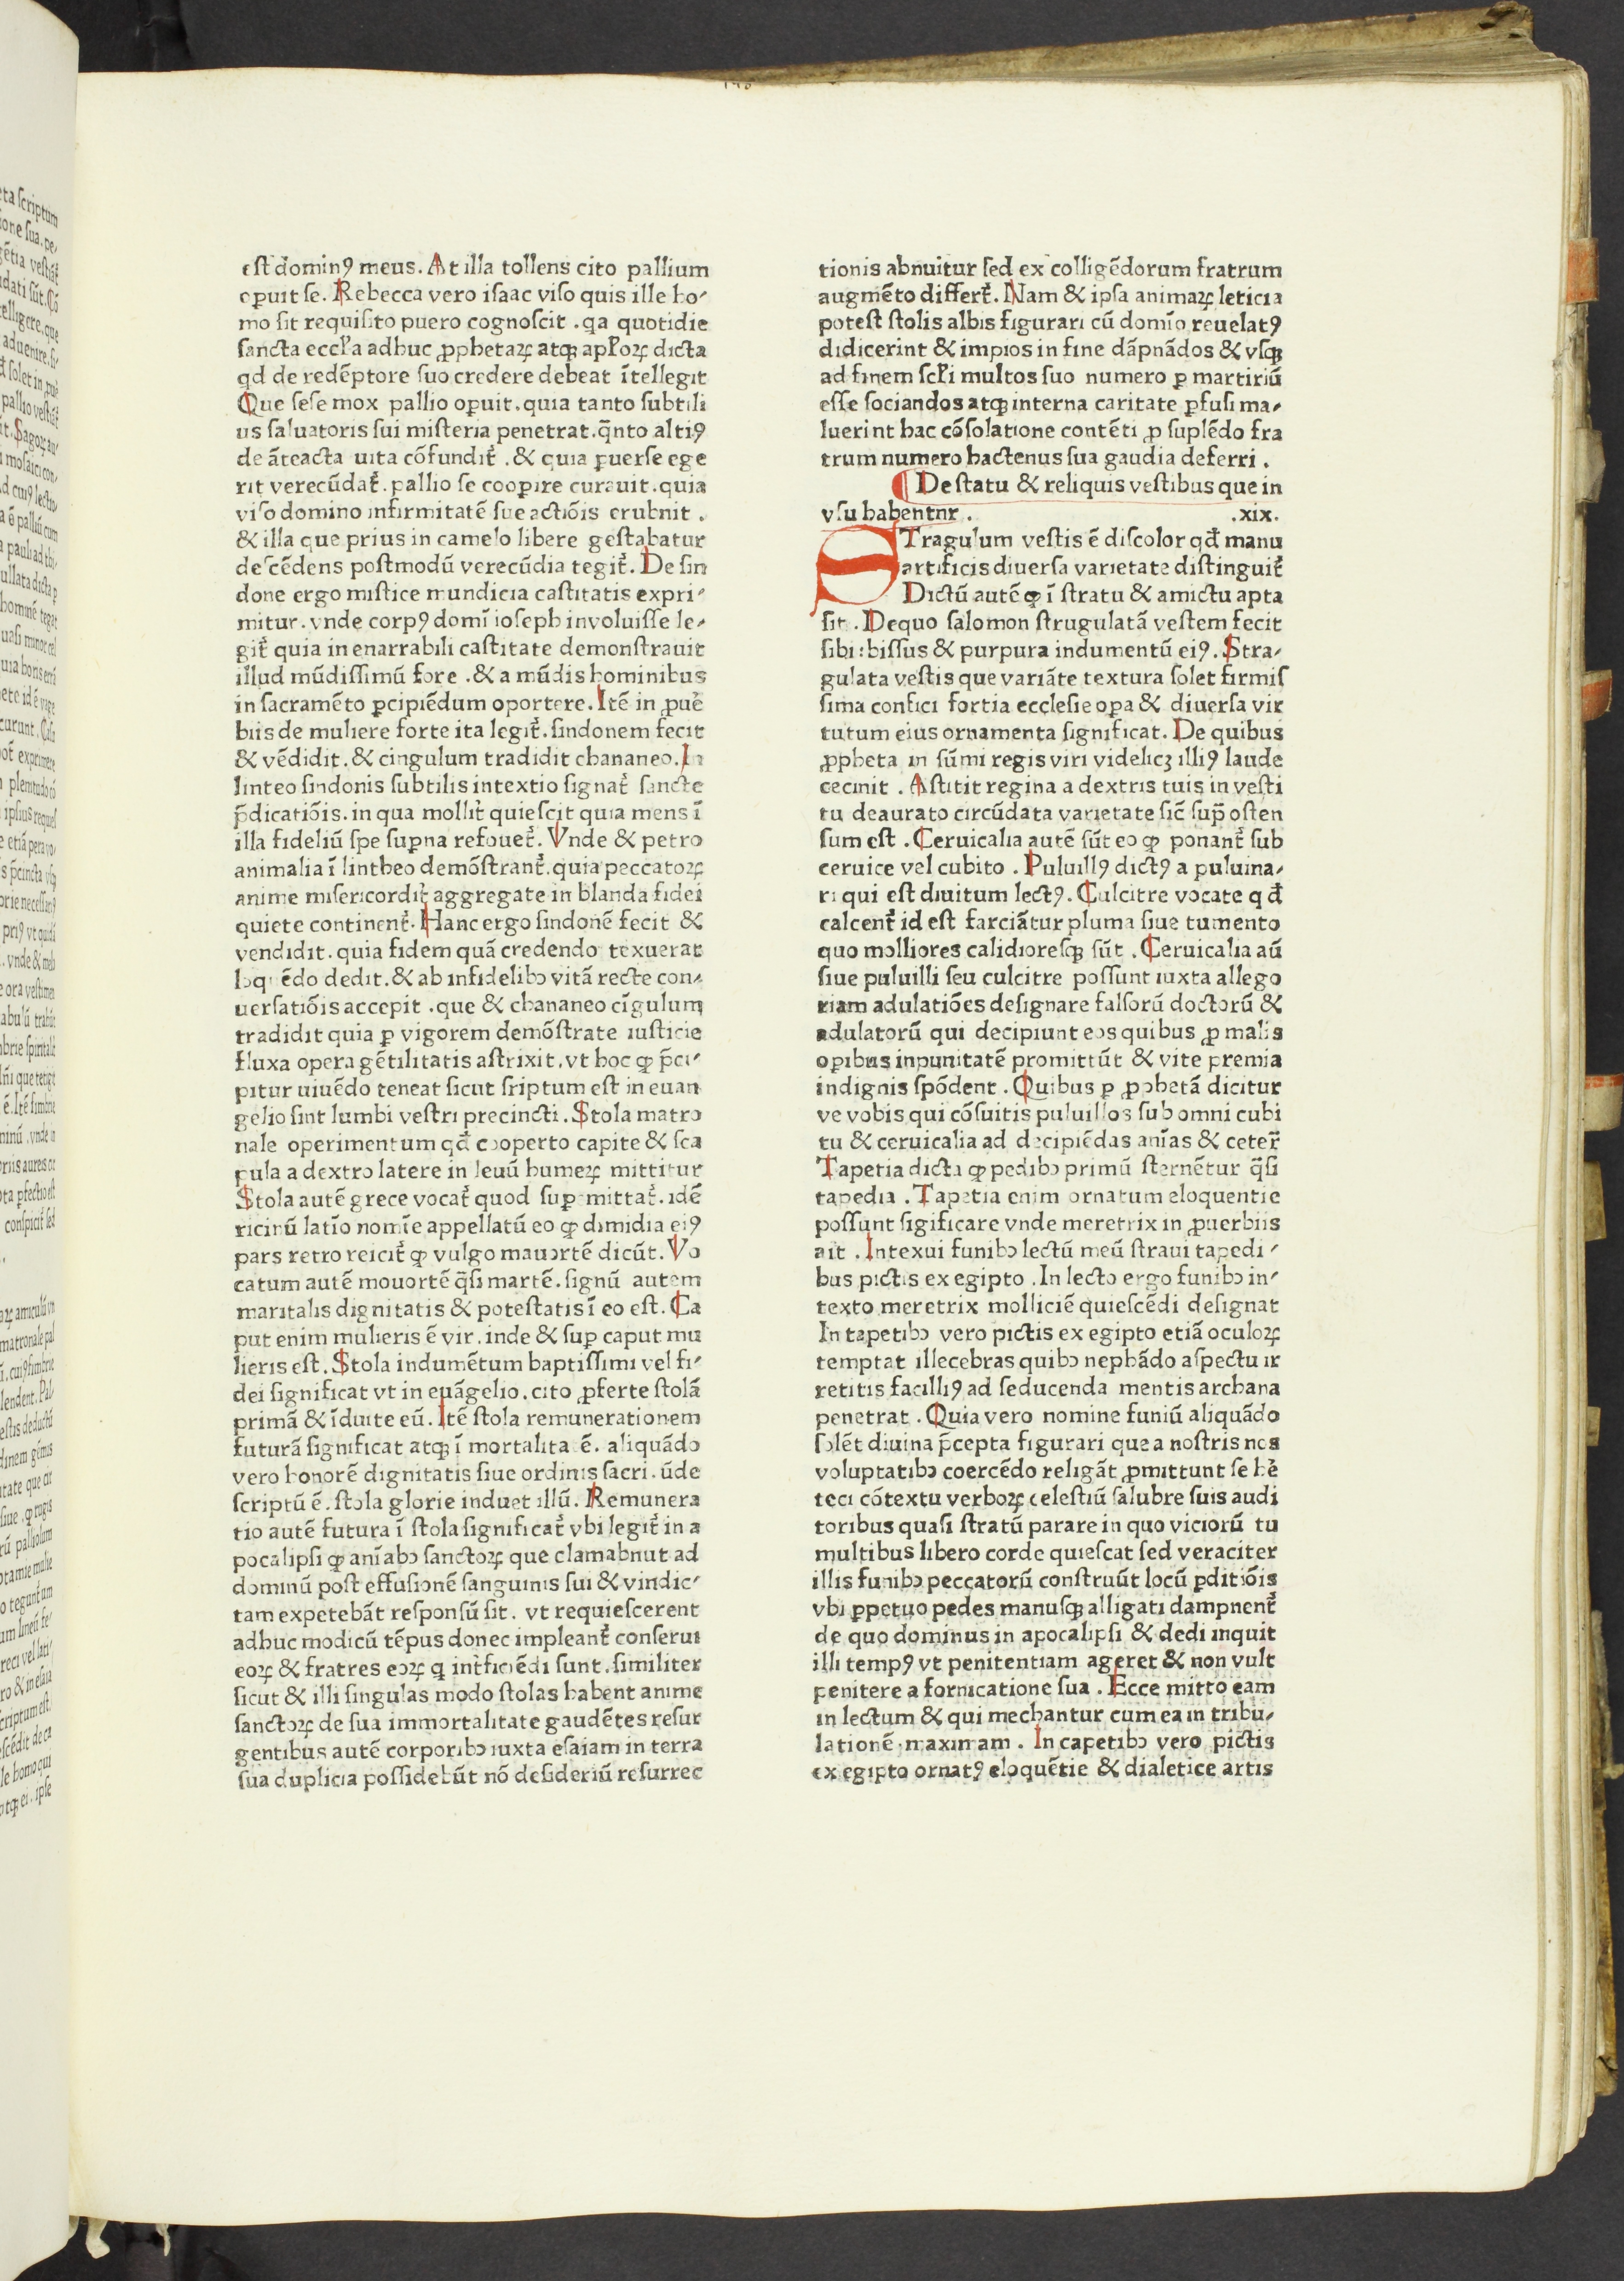 est dominꝯ meus. At illa tollens cito pallium
opuit se. Rebecca vero isaac viso quis ille ho-
mo sit requisito puero cognoscit . qa quotidie
sancta eccl'a adhuc ꝓphetaꝝ atqꝫ apl'oꝝ dicta
qd de redēptore suo credere debeat ītellegit
Que sese mox pallio oꝑuit. quia tanto subtili
us saluatoris sui misteria penetrat. q̄nto altiꝯ
de āteacta uita cōfundit᷑ . & quia ꝑuerse ege
rit verecūdat᷑. pallio se cooꝑire curauit. quia
viso domino infirmitatē sue actiōis erubnit .
& illa que prius in camelo libere gestabatur
descēdens postmodū verecūdia tegit᷑. De sin
done ergo mistice mundicia castitatis expri-
mitur. vnde corpꝯ domī ioseph involuisse le-
git᷑ quia inenarrabili castitate demonstrauit
illud mūdissimū fore . & a mūdis hominibus
in sacramēto ꝑcipiēdum oportere. Itē in ꝓue᷑
biis de muliere forte ita legit᷑. sindonem fecit
& vēdidit. & cingulum tradidit chananeo. In
linteo sindonis subtilis intextio signat᷑ sancte
p̄dicatiōis. in qua mollit᷑ quiescit quia mens ī
illa fideliū spe suꝑna refouet᷑. Vnde & petro
animalia ī lintheo demōstrant᷑. quia peccatoꝝ
anime misericordit᷑ aggregate in blanda fidei
quiete continent᷑. Hanc ergo sindonē fecit &
vendidit. quia fidem quā credendo texuerat
loquēdo dedit. & ab infidelibꝰ vitā recte con-
uersatiōis accepit . que & chananeo cīgulum
tradidit quia ꝑ vigorem demōstrate iusticie
fluxa opera gētilitatis astrixit. vt hoc ꝙ p̄ci-
pitur uiuēdo teneat sicut sriptum est in euan
gelio sint lumbi vestri precincti. Stola matro
nale operimentum qđ cooperto capite & sca
pula a dextro latere in leuū humeꝝ mittitur
Stola autē grece vocat᷑ quod suꝑ mittat᷑. idē
ricinū latīo nomīe appellatū eo ꝙ dimidia eiꝯ
pars retro reicit᷑ ꝙ vulgo mauortē dicūt. Vo
catum autē mouortē q̄si martē. signū autem
maritalis dignitatis & potestatis ī eo est. Ca
put enim mulieris ē vir. inde & suꝑ caput mu
lieris est. Stola indumētum baptissimi vel fi-
dei significat vt in euāgelio. cito ꝓferte stolā
primā & īduite eū. Itē stola remunerationem
futurā significat atqꝫ ī mortalita ē. aliquādo
vero honorē dignitatis siue ordinis sacri. ūde
scriptū ē. stola glorie induet illū. Remunera
tio autē futura ī stola significat᷑ vbi legit᷑ in a
pocalipsi ꝙ anīabꝰ sanctoꝝ que clamabnut ad
dominū post effusionē sanguinis sui & vindic-
tam expetebāt responsū sit. vt requiescerent
adhuc modicū tēpus donec impleant᷑ conserui
eoꝝ & fratres eoꝝ q int᷑ficiēdi sunt. similiter
sicut & illi singulas modo stolas habent anime
sanctoꝝ de sua immortalitate gaudētes resur
gentibus autē corporibꝰ iuxta esaiam in terra
sua duplicia possidebūt nō desideriū resurrec
tionis abnuitur sed ex colligēdorum fratrum
augmēto differt᷑. Nam & ipsa animaꝝ leticia
potest stolis albis figurari cū domīo reuelatꝯ
didicerint & impios in fine dāpnādos & vsqꝫ
ad finem scl'i multos suo numero ꝑ martiriū
esse sociandos atqꝫ interna caritate ꝑfusi ma-
luerint hac cōsolatione contēti ꝓ suplēdo fra
trum numero hactenus sua gaudia deferri .
¶ De statu & reliquis vestibus que in
vsu habentnr . .xix.
STragulum vestis ē discolor qđ manu
artificis diuersa varietate distinguit᷑
Dictū autē ꝙ ī stratu & amictu apta
sit . Dequo salomon strugulatā vestem fecit
sibi : bissus & purpura indumentū eiꝯ. Stra-
gulata vestis que variāte textura solet firmis
sima confici fortia ecclesie oꝑa & diuersa vir
tutum eius ornamenta significat. De quibus
ꝓpheta in sūmi regis viri videlicꝫ illiꝯ laude
cecinit . Astitit regina a dextris tuis in vesti
tu deaurato circūdata varietate sic̄ sup̄ osten
sum est . Ceruicalia autē sūt eo ꝙ ponant᷑ sub
ceruice vel cubito . Puluillꝯ dictꝯ a puluina-
ri qui est diuitum lectꝯ. Culcitre vocate qđ
calcent᷑ id est farciātur pluma siue tumento
quo molliores calidioresqꝫ sūt . Ceruicalia aū
siue puluilli seu culcitre possunt iuxta allego
riam adulatiōes designare falsorū doctorū &
adulatorū qui decipiunt eos quibus ꝓ malis
oꝑibus inpunitatē promittūt & vite premia
indignis spōdent . Quibus ꝑ ꝓphetā dicitur
ve vobis qui cōsuitis puluillos sub omni cubi
tu & ceruicalia ad decipiēdas anīas & ceter̄
Tapetia dicta ꝙ pedibꝰ primū sternētur q̄si
tapedia . Tapetia enim ornatum eloquentie
possunt sigificare vnde meretrix in ꝓuerbiis
ait . Intexui funibꝰ lectū meū straui tapedi-
bus pictis ex egipto . In lecto ergo funibꝰ in-
texto meretrix molliciē quiescēdi designat
In tapetibꝰ vero pictis ex egipto etiā oculoꝝ
temptat illecebras quibꝰ nephādo aspectu ir
retitis facilliꝯ ad seducenda mentis archana
penetrat . Quia vero nomine funiū aliquādo
solēt diuina p̄cepta figurari que a nostris nos
voluptatibꝰ coercēdo religāt ꝓmittunt se he᷑
teci cōtextu verboꝝ celestiū salubre suis audi
toribus quasi stratū parare in quo viciorū tu
multibus libero corde quiescat sed veraciter
illis funibꝰ peccatorū construūt locū ꝑditiōis
vbi ꝑpetuo pedes manusqꝫ alligati dampnent᷑
de quo dominus in apocalipsi & dedi inquit
illi tempꝯ vt penitentiam ageret & non vult
penitere a fornicatione sua . Ecce mitto eam
in lectum & qui mechantur cum ea in tribu-
lationē maximam . In capetibꝰ vero pictis
ex egipto ornatꝯ eloquētie & dialetice artis